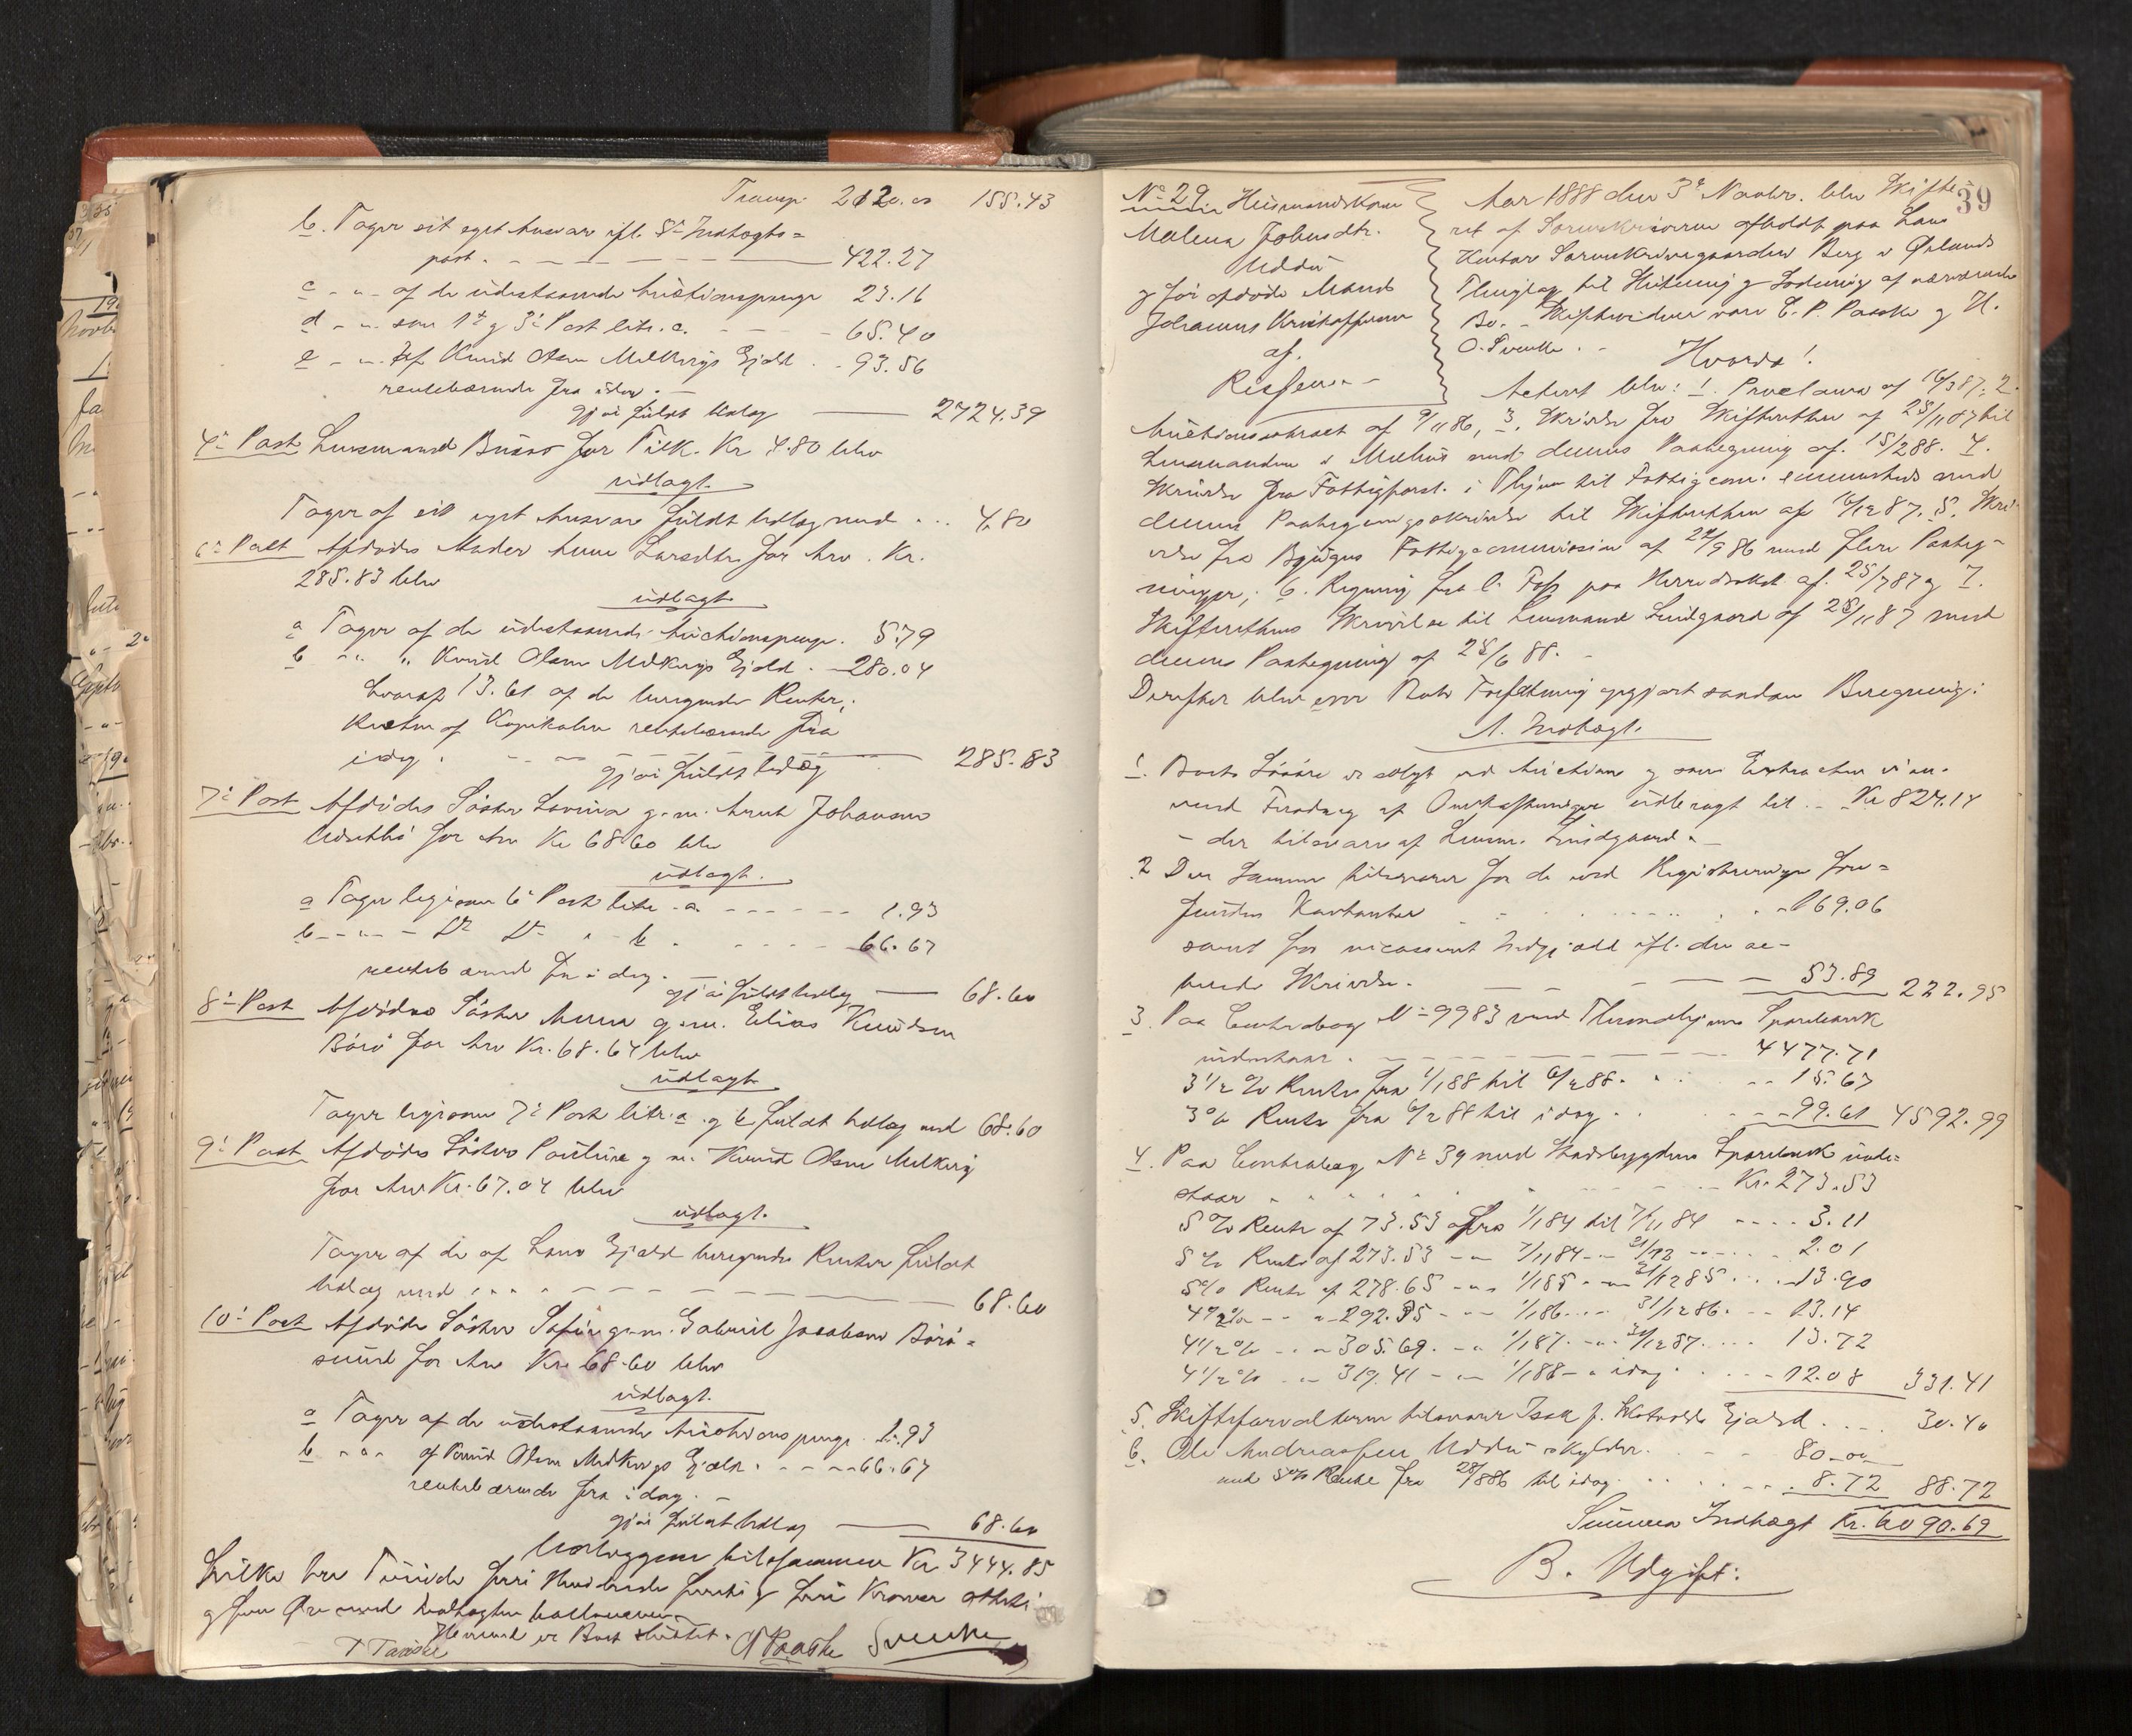 Transp. 2120.00 155.43
b. Tager sit eget ansvar ifl. 8de Indtægts=
post. 422.27
c - " - af de udestaaende Auctionspenge 23.16
d - " - som 1ste og 3die Post litr. c. 65.40
e - " - Knud Olsen Melkvigs Gjæld. 93.56
rentebærende fra idag.
gjør fuldt Udlæg 2724.39
4de Post Lensmand for Tilk. Kr 4.80 blev
udlagt.
Tager af sit eget Ansvar fuldt Udlæg med ... 4.80
6te Post Afdødes Moder Anne Larsdtr. for Arv. Kr.
285.83 blev
udlagt
a Tager af de udestaaende Auctionspenge. 5.79
b - " " Knud Olsens Melkvigs Gjæld. 280.04
hvoraf 13.61 af de beregnede Renter,
Resten af Kapitalen rentebærende fra
idag.
gjør fuldt Udlæg 285.83
7de Post Afdødes Søster Lovina g. m. Arnt Johansen
for Arv Kr 68.60 blev
udlagt.
a Tager ligesom 6te Post litr. a. 1.93
b - " - Do Do " b. 66.67
rentebærende fra idag.
gjør fuldt Udlæg 68.60
8de Post Afdødes Søster Anna g. m. Elias Knudsen
Börö for Arv Kr. 68.64 blev
udlagt
Tager ligesom 7de Post litr. a og b fuldt Udlæg med 68.60
9de Post Afdødes Søster Pauline g. m. Knud Olsen Melkvig
for Arv Kr. 67.04 blev
udlagt.
Tager af de af hans Gjæld beregnede Renter fuldt
Udlæg med 68.60
10de Post Afdødes Søster g. m. Gabriel Jacobsen Börö=
sund for Arv Kr. 68.60 blev
udlagt.
a Tager af de udestaaende Auctionspenge. 1.93
b " " " af Knud Olsen Melkvigs Gjæld. 66.67
rentebærende fra idag.
gjør fuldt Udlæg 68.60
Udlæggene tilsammen Kr 3444.85
hvilke tre Tusinde fire Hundrede firti og fire Kroner otteti
og fem Øre med Indtægten ballancerer.
Hermed er Boet sluttet.
T Taaske C P Paaske Svenke
39
No 29 Huusmandskone
Malena Johnsdtr.
Uddu
og før afdøde Mand
Johannes Kristoffersen
af
Rissen. -
Aar 1888 den 3de Novbr. blev Skifte=
ret af Sorenskriveren afholdt paa hans
Kontor Sorenskrivergaarden Berg i Ørlands
Thinglag til Slutning og Lodning af nærværende
Bo. - Skiftevidner vare C. P. Paaske og H.
O. Svenke. -
Hvorda!
Acteret blev: 1. Proclama af 16/3 87. 2.
Auctionsextract af 9/11 86, 3. Skrivelse fra Skifteretten af 25/11 87 til
Lensmanden i Melhus med dennes Paategning af 15/2 88. 4.
Skrivelse fra Fattigforst. i Thjem til Fattigcom. sammesteds med
dennes Paategningsskrivelse til Skifteretten af 16/12 87. 5. Skri=
velse fra Bjugns Fattigcommission af 22/9 86 med flere Paateg=
ninger, 6. Regning fra C. Foss paa Herredsskat af 25/7 87 og 7.
Skifterettens Skrivelse til Lensmand Lindgaard af 25/11 87 med
dennes Paategning af 25/6 88. -
Derefter blev over Boets Forfatning opgjort saadan Beregning:
A. Indtægt.
1. Boets Løsøre er solgt ved Auction og som Extracten viser
med Fradrag af Omkostningerne udbragt til Kr 824.14
- der tilsvares af Lensm. Lindgaard. -
2 Den Samme tilsvarer for de ved Registreringen fore=
fundne Kontanter 169.06
samt for incasseret Indgjæld ifl. den ac=
terede Skrivelse. 53.89 222.95
3. Paa Contrabog No 9983 med Throndhjems Sparebank
indestaar. 4477.71
3 1/2 % Renter fra 1/1 88 til 6/2 88. 15.67
3 % Rente fra 6/2 88 til idag. 99.61 4592.99
4. Paa Contrabog No 39 med Stadsbygdens Sparebank inde=
staar Kr. 273.53
5 % Rente af 73.53 fra 1/1 84 til 7/11 84 3.11
5 % Rente af 273.53 - " - 7/11 84 - " - 31/12 2.01
5 % Rente af 278.65 - " - 1/1 85 - " - 31/12 85 13.90
4 1/2 % - " - 292.55 - " - 1/1 86 - " - 31/12 86 13.14
4 1/2 % - " - 305.69 - " - 1/1 87 - " - 31/12 87 13.72
4 1/2 % - " - 319.41 - " - 1/1 88 - " idag 12.08 331.41
5. Skifteforvalteren tilsvarer Isak J. Gjæld 30.40
6. Ole Andreassen Uddu skylder. 80.00
med 5 % Rente fra 28/8 86 til idag 8.72 88.72
Summa Indtægt Kr. 6090.69
B. Udgift: